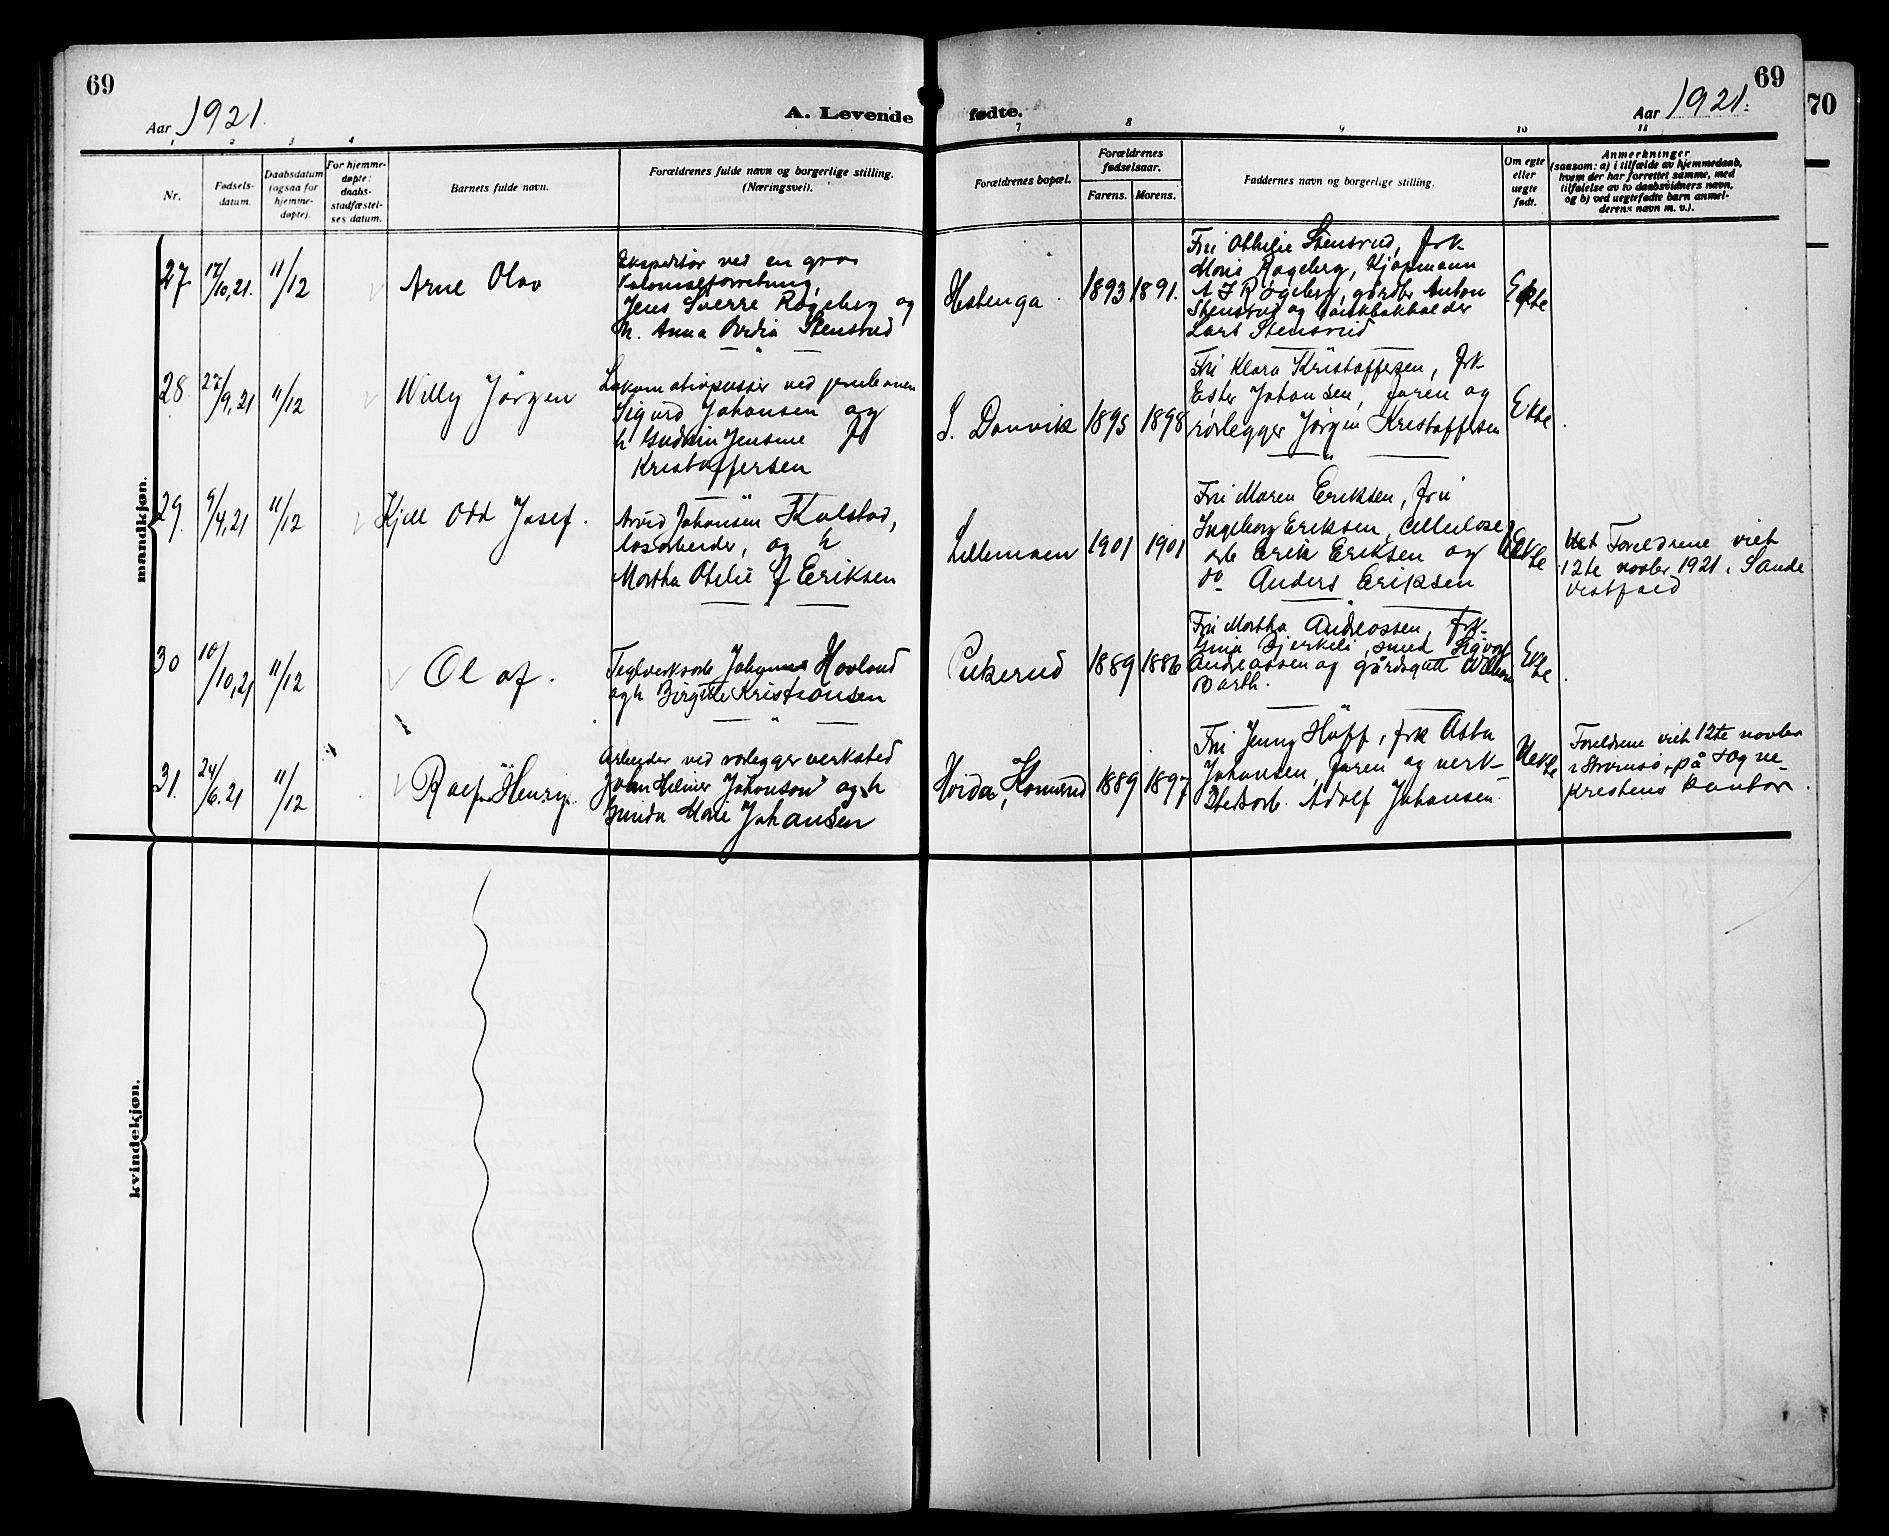 69
Aar 1921.
A. Levende fødte.
Aar 1921.
69
70
1 2 3 4 7 8 9 10 11
Nr.
Fødsels-
datum.
Daabsdatum
(ogsaa for
hjemme-
døpte).
For hjemme-
døpte:
daabs-
stadfæstel-
ses datum.
Barnets fulde navn.
Forældrenes fulde navn og borgerlige stilling.
(Næringsvei).
Forældrenes bopæl.
Forældrenes
fødselsaar.
Farens. Morens.
Faddernes navn og borgerlige stilling.
Om egte
eller
uegte
født.
Anmerkninger
(saasom: a) i tilfælde av hjemmedaab,
hvem der har forrettet samme, med
tilføielse av to daabsvidners navn,
og b) ved uegtefødte barn anmel-
derens navn m. v.).
mandkjøn.
27
17/10,21.
11/12
Arne Olav
Ekspeditør ved en gros
kolonialforretning,
Jens Sverre Røgeberg og
h. Anna Stensrud
Hestenga.
1893 1891.
Fru Othilie Stensrud, frk
Marie Røgeberg, Kjøpmann
A J Røgeberg, gårdbr Anton
Stensrud og
Lars Stensrud
Ekte
28
27/9,21
11/12
Willy Jørgen
Lokomotivpusser ved jernbanen
Sigurd Johansen og
h Gudrun Jensine f
Kristoffersen
S. Danvik
1895 1898
Fru Klara Kristoffersen, frk
Ester Johansen, faren og
rørlegger Jørgen Kristoffersen
Ekte
29
9/4,21
11/12
Kjell Odd Josef.
Arvid Johansen Kolstad,
løsarbeider, og h
Martha Otilie f Eriksen
Lillemoen
1901 1901
Fru Maren Eriksen, fru
Ingeborg Eriksen, cellulose
arb Erik Eriksen og
do Anders Eriksen
Uekte
Foreldrene viet
12te novbr 1921 i Sande
Vestfold
30
10/10,21
11/12
Olaf.
Teglverksarb Johannes Hovland
og h Birgitte Kristiansen
Pukerud
1889 1886
Fru Martha Andreassen, frk
Gina Bjerkeli, smed Sigvat
Andreassen og gårdsgutt William
Barth.
Ekte
31.
24/6.21
11/12
Rolf Henry.
Arbeider ved rørleggerverksted
Johan Hilmer Johanson og h
Marie Johansen
Horda, Konnerud
1889 1897
Fru Jenny Hoff, frk Asta
Johansen, faren og verk-
stedsarb. Adolf Johansen
Uekte
Foreldrene viet 12te novbr
i Strømsø, på sogne-
prestens kontor.
kvindekjøn.